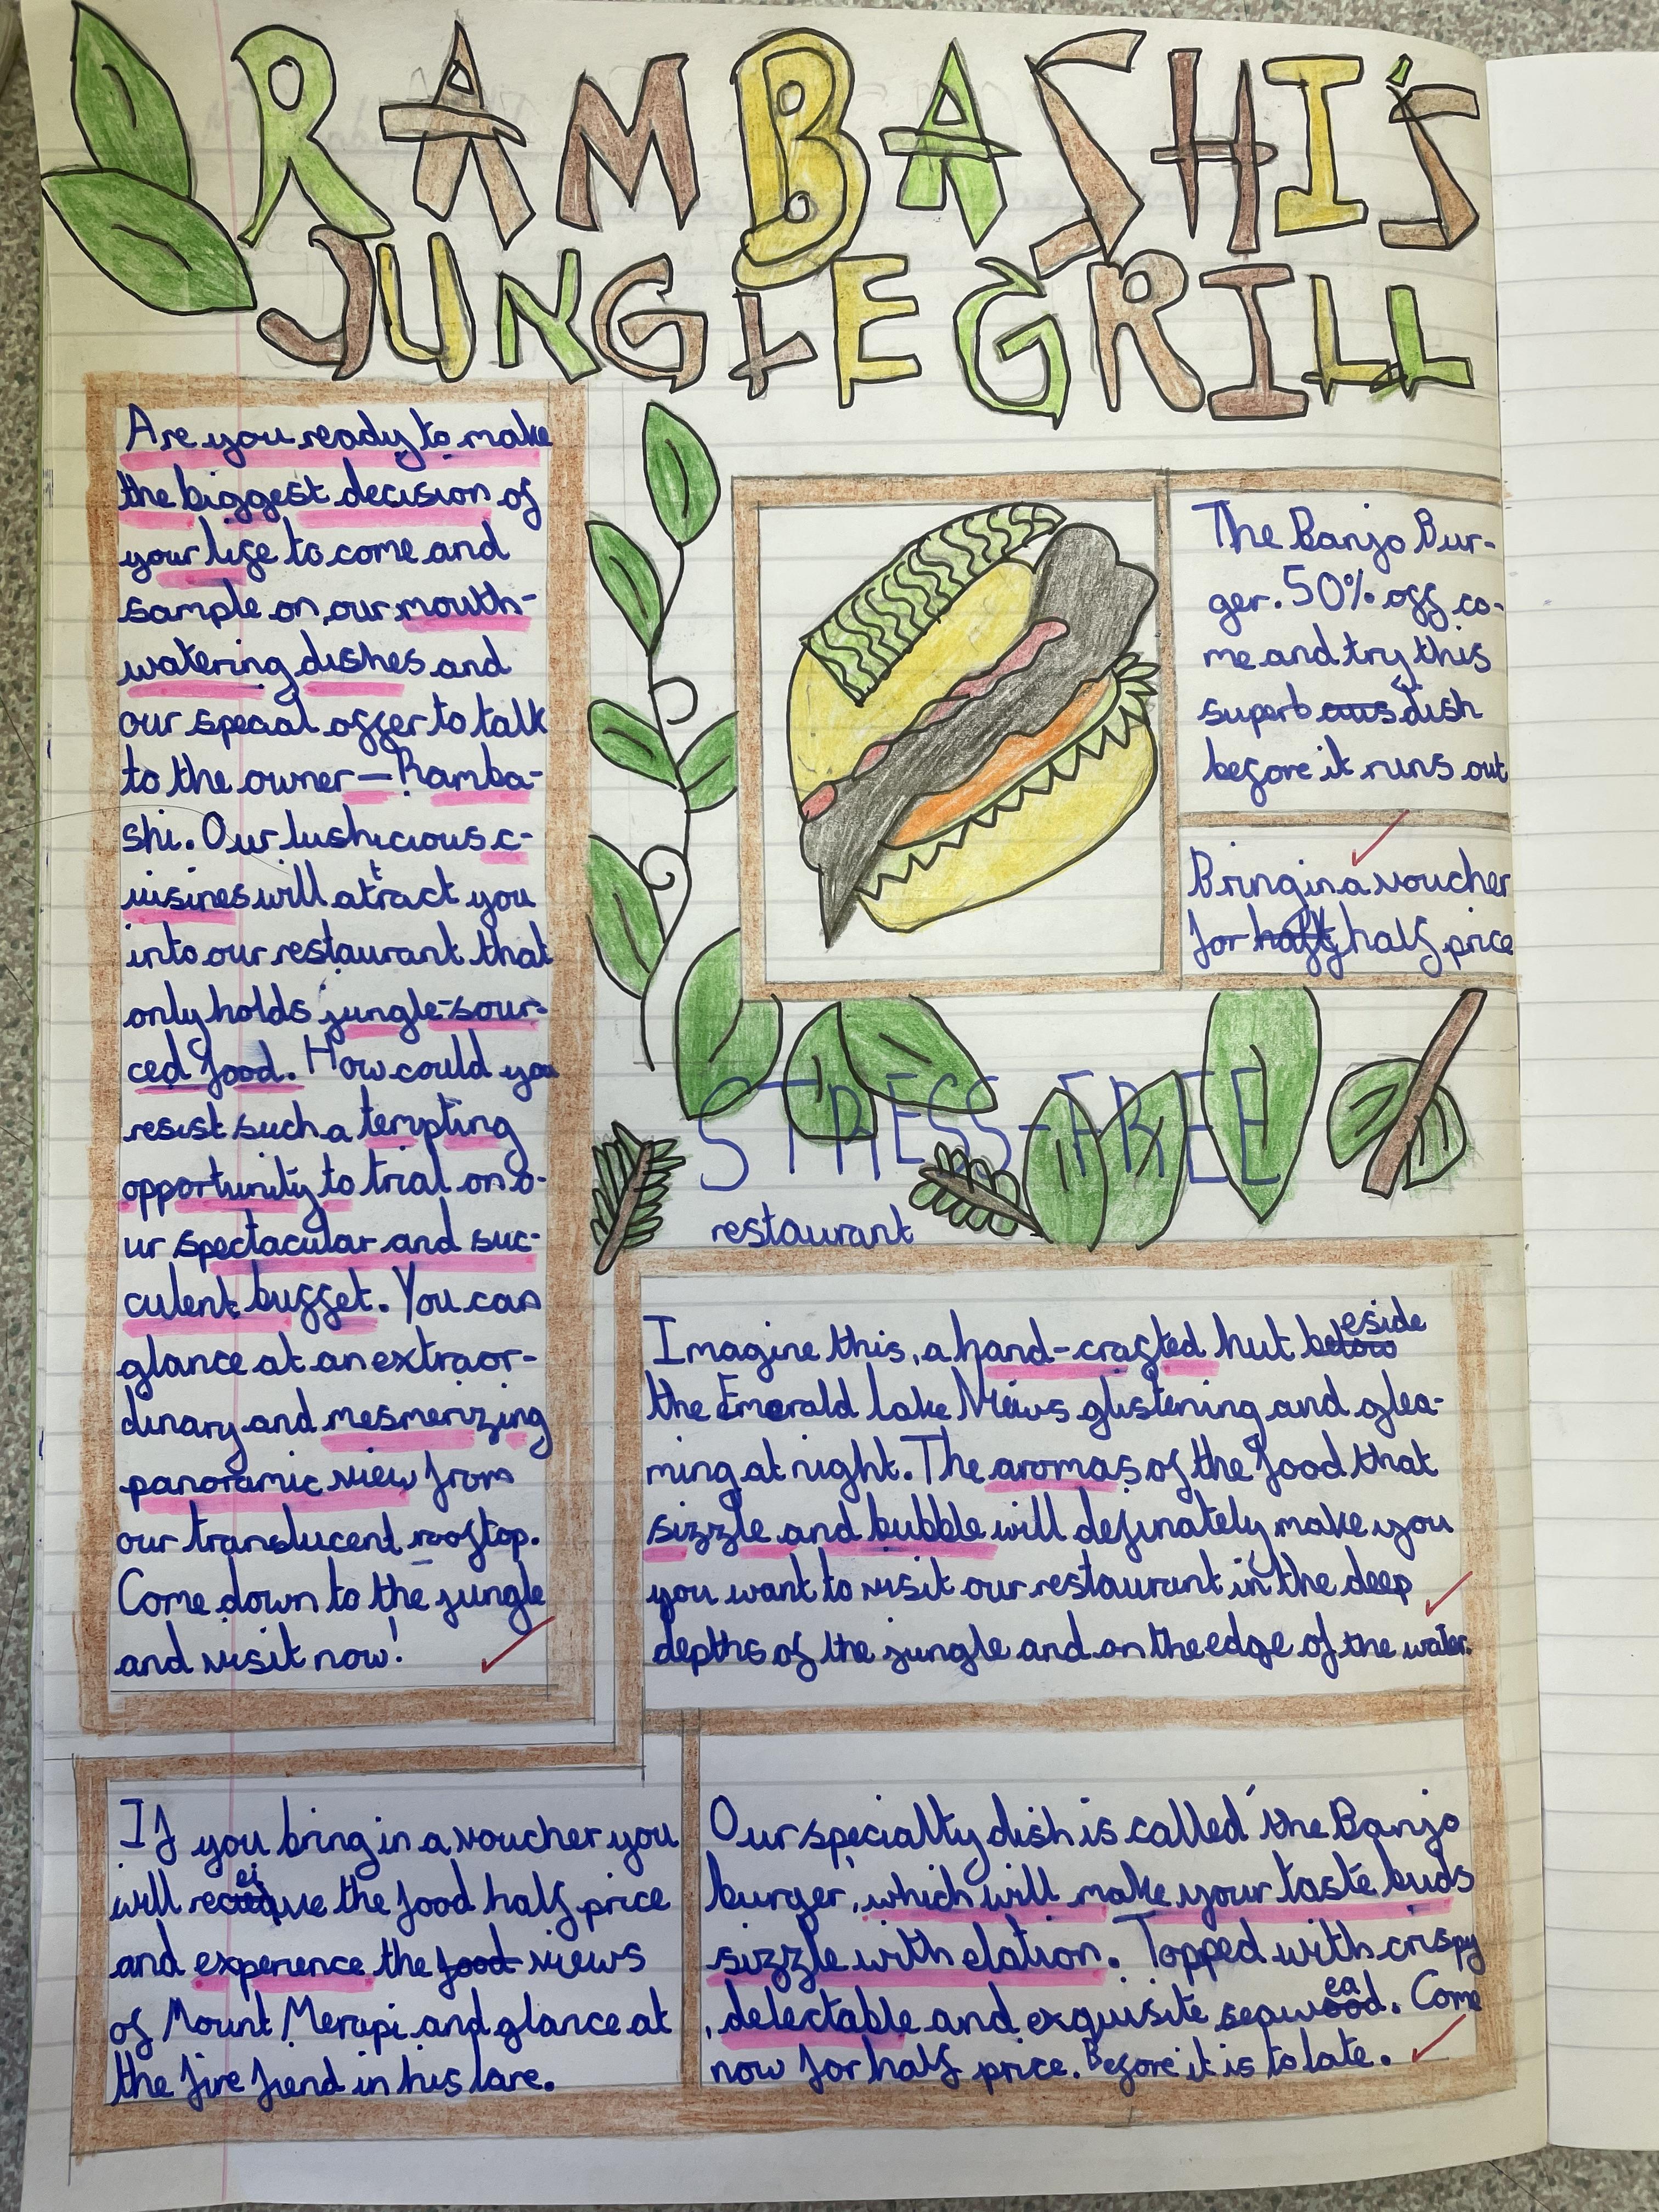 RAMBASHI'S
JUNGLE GRILL
Are you ready to make
the biggest decision of
your life to come and
sample on our mouth-
watering dishes and
our special offer to talk
to the owner — Ramba-
shi. Our lushicious c-
uisines will attract you
into our restaurant that
only holds jungle-sour-
ced food. How could you
resist such a tempting
opportunity to trial on o-
ur spectacular and suc-
culent buffet. You can
glance at an extraor-
dinary and mesmerizing
panoramic view from
our translucent rooftop.
Come down to the jungle
and visit now!
The Banjo Bur-
ger. 50% off co-
me and try this
superb dish
before it runs out
Bring in a voucher
for half price
STRESS-FREE
restaurant
Imagine this, a hand-crafted hut beside
the Emerald Lake Views glistening and glea-
ming at night. The aromas of the food that
sizzle and bubble will definately make you
you want to visit our restaurant in the deep
depths of the jungle and on the edge of the water.
If you bring in a voucher you
will receive the food half price
and experience the food views
of Mount Merapi and glance at
the fire fiend in his lare.
Our specialty dish is called 'the Banjo
burger', which will make your taste buds
sizzle with elation. Topped with crispy
, delectable and exquisite seawead. Come
now for half price. Before it is to late.